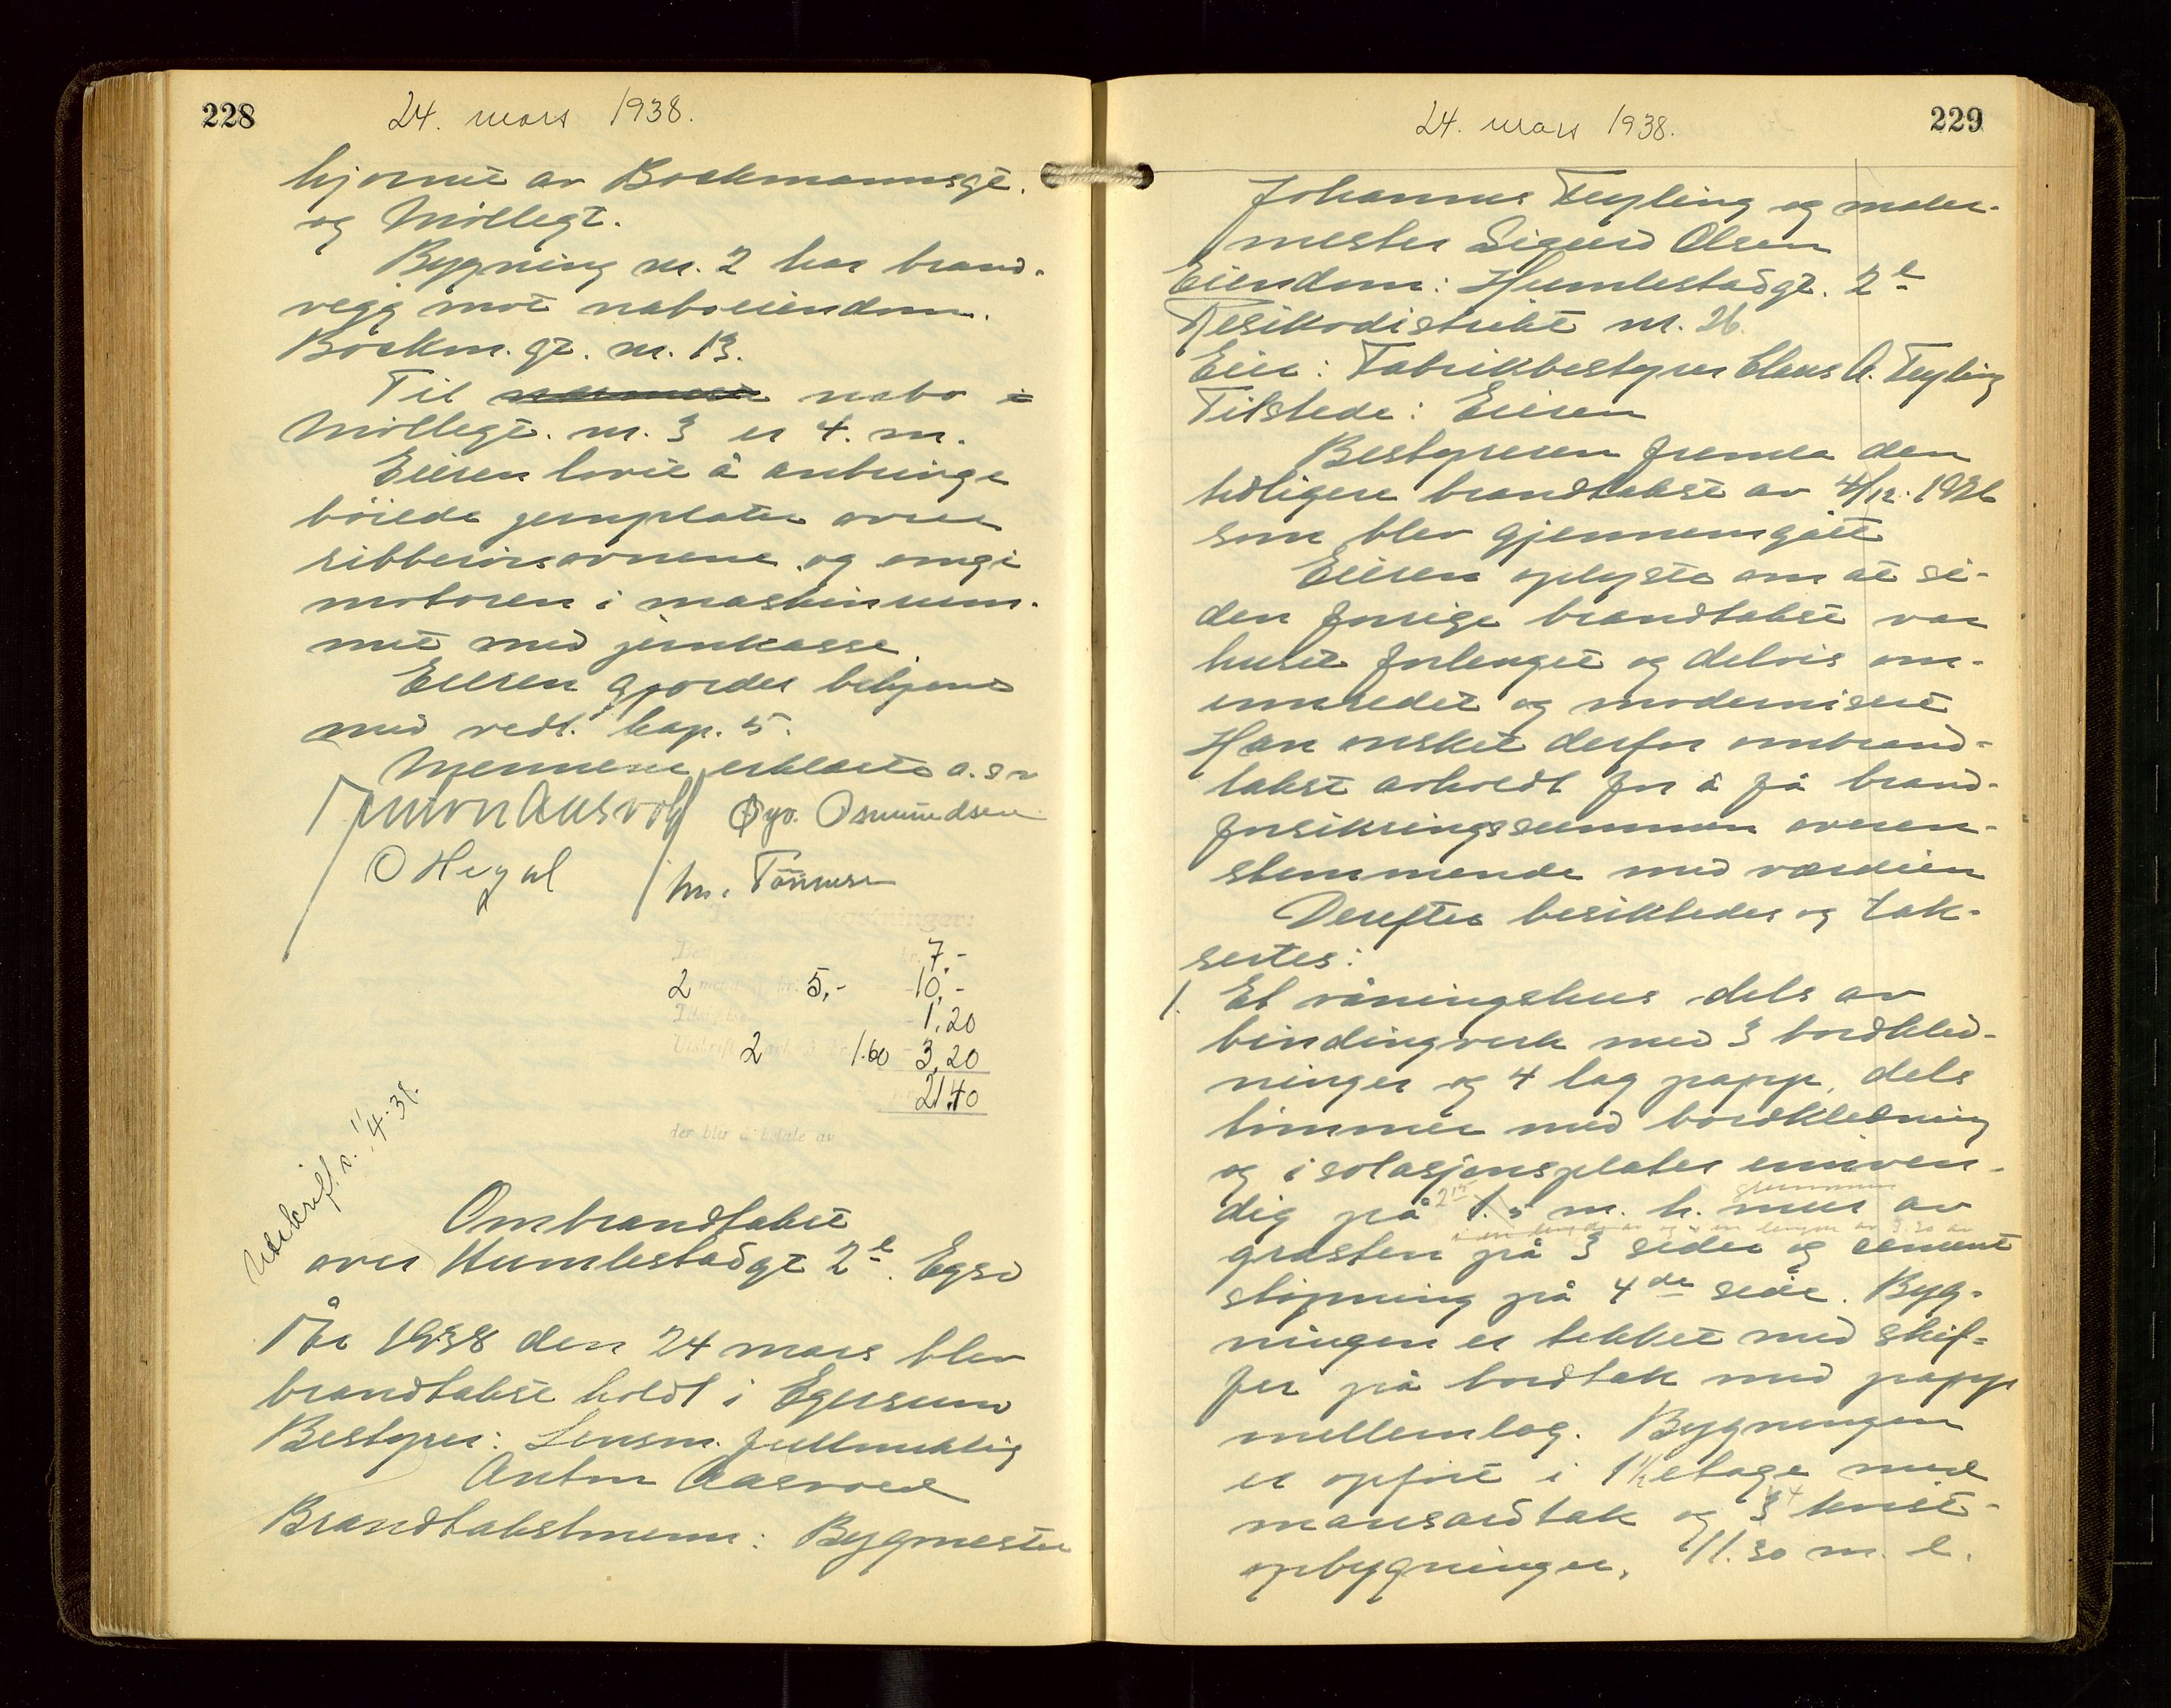 228
24. mars 1938.
hjørnet av Bøckmannsgt.
og Møllegt.
Bygning nr. 2 har brand-
vegg mot naboeiendom.
Bøckm. gt. nr. 13.
Til nabo i
Møllegt. nr. 3 er 4. m.
Eieren lovet å anbringe
böiede jernplater over
ribberørsovnene og omgi
motoren i maskinrum-
met med jernkasse.
Eieren gjordes bekjent
med vedt. kap. 5.
Mennene erklærte o.s.v
Anton Aasvold Øyv. Osmundsen
O Hegdal
Tønnesen
Omkostninger:
7,-
2 mend kr. 5,- 10,-
1,20
Utskrift 2 1.60 3,20
21,40
der blir å betale av
Utskrift s. 11/4.38.
Ombrandtakst
over Humlestadgt 2e. Egsd
År 1938 den 24 mars blev
brandtakst holdt i Egersund
Bestyrer: Lensm. fullmektig
Anton Aasvold
Brandtakstmenn: Bygmester
24. mars 1938.
229
Johannes Feyling og maler-
mester Sigurd Olsen
Eiendom: Humlestadgt. 2e
Risikodistrikt nr. 26
Eier: Fabrikbestyrer Claus A. Feyling
Tilstede: Eieren
Bestyreren fremla den
tidligere brandtakst av 4/12. 1926
som blev gjennemgått
Eieren oplyste om at si-
den forrige brandtakst var
huset forlenget og delvis om-
innredet og modernisert
Han ønsket derfor ombrand-
takst avholdt for å få brand-
forsikringssummen overen-
stemmende med værdien
Derefter besiktedes og tak-
sertes:
1. Et våningshus dels av
bindingverk med 3 bordkled-
ninger og 4 lag papp, dels
tømmer med bordkledning
og isolasjonsplater innven-
dig på 2.15 1.5 m. h. mur av
gråsten på 3 sider og cement
støpning på 4de side. Byg-
ningen er tekket med skif-
fer på bordtak med papp
mellemlag. Bygningen
er opført i 1 1/2 etage med
mansardtak og 3 4 kvist-
opbygninger, 11.30 m. l.